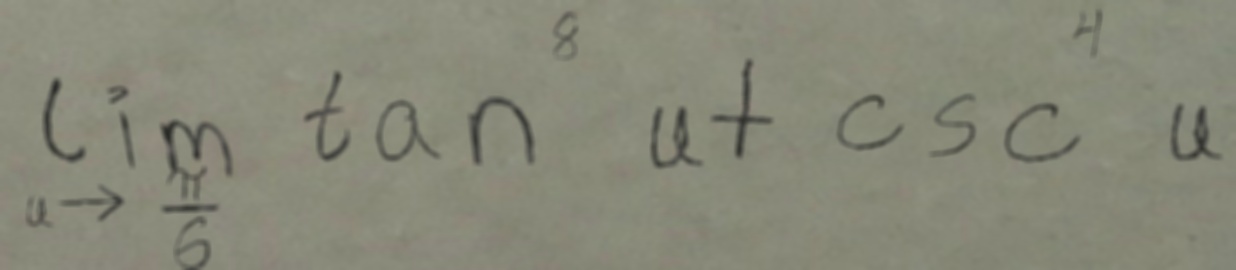 \lim_{u \to \frac{\pi}{6}} \tan^8 u + \csc^4 u